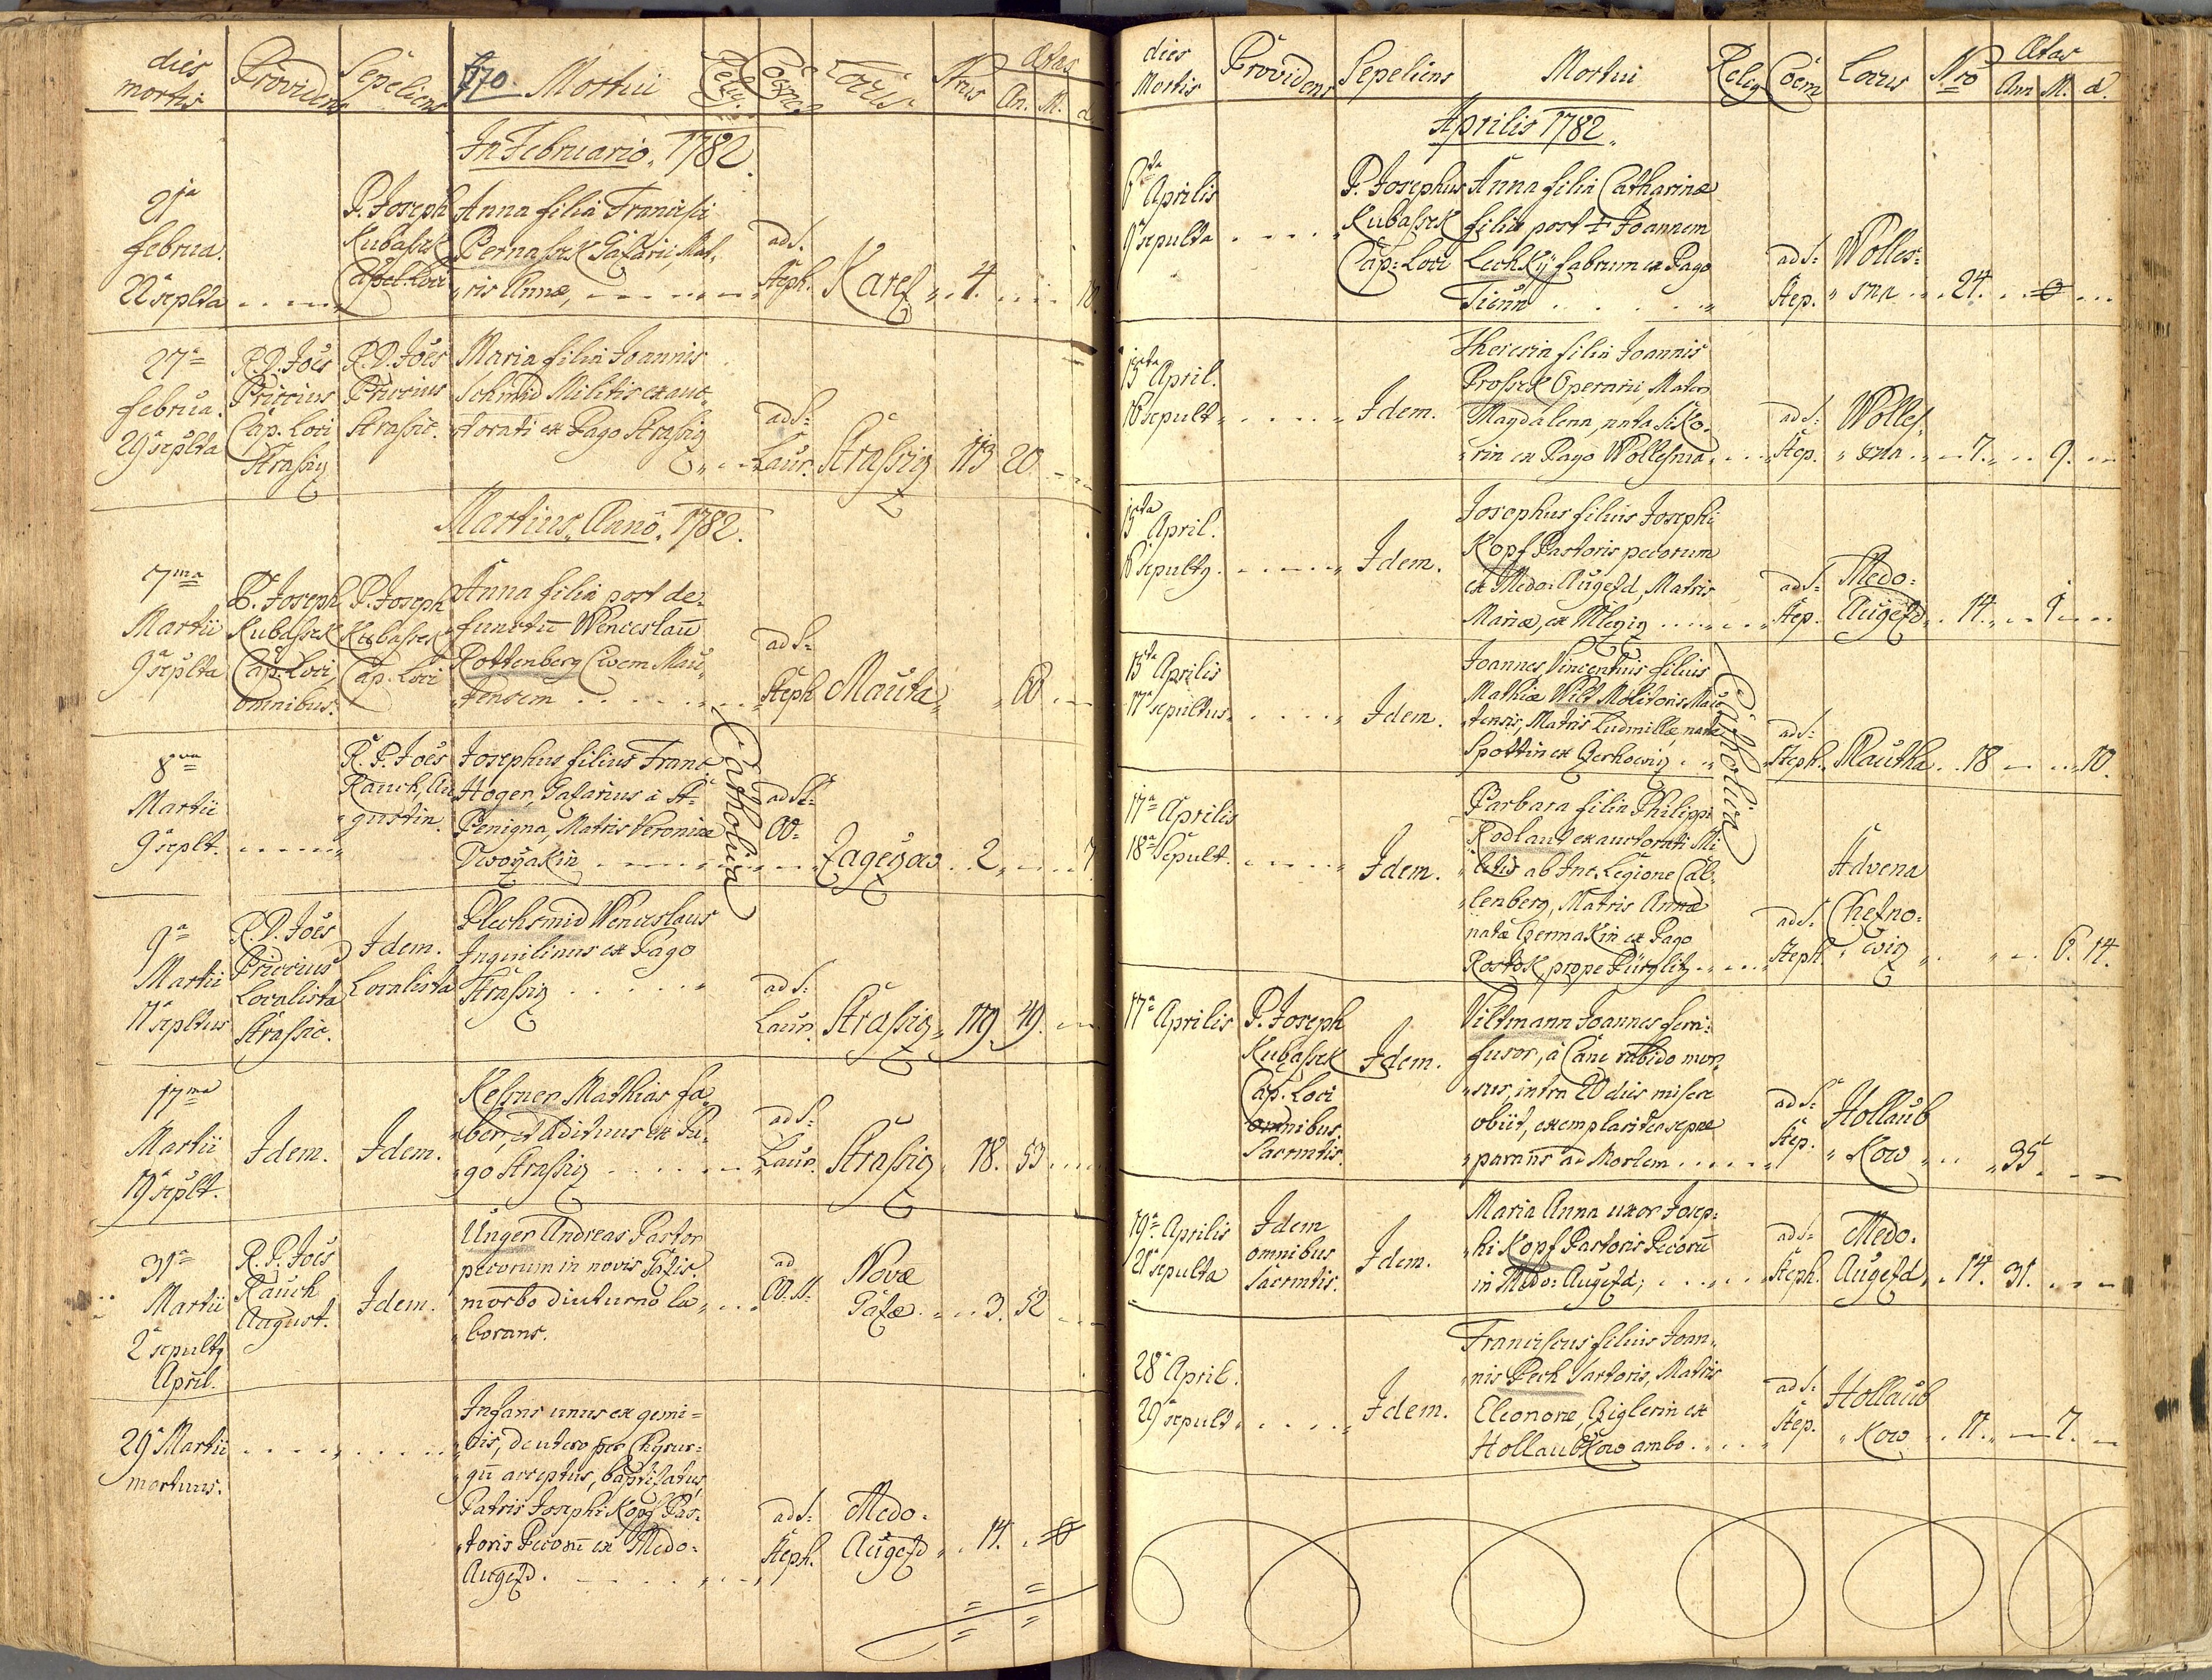 dies mortis Providens Sepeliens 170. Mortui Relig. Coem. Locus Nrus Ætas An. M. d.
In Februario. 1782.
21ª februa. 22ª seplta
P. Joseph Kubassek Capel. Loci
Anna filia Francisci
Pernassek Gazarii, Mat-
ris Annæ,
ad S. Steph. Karez 4. 10.
27ª februa. 29ª seplta
R.D. Joes Priccius Cap. Loci Strassiz
R.D. Joes Priccius Strassic.
Maria filia Joannis
Schmid Militis exauc-
torati ex Pago Strassiz
ad S. Laur. Strassiz 113 20
Martius Anno. 1782.
7ma Martii 9ª seplta
P. Joseph Kubassek Cap. Loci omnibus.
P. Joseph Kubassek Cap. Loci
Anna filia post de-
functu Wenceslau
Rottenberg Civem Mau-
tensem
ad S. Steph Mauta 60
8va Martii 9ª seplt.
R. P. Joes Rauch, Au gustin.
Josephus filius Franc.
Hoger, Gazarius à St
Benigna, Matris Veronicæ
Dworzakin
Catholica
Zagezow 2 7
9ª Martii 11ª sepltus
R.D. Joes Priccius Localista Strassic.
Idem. Localista
Plechsmid Wenceslaus
Inquilinus ex Pago
Strassiz
ad S. Laur. Strassiz 119. 49.
17ma Martii 19ª seplt.
Idem. Idem.
Kessner Mathias fa-
ber, et Adituus ex Pa-
go Strassiz
ad S. Laur. Strassiz 18. 53
31ª Martii 2ª sepult9 April.
R. P. Joes Rauch August.
Idem.
Unger Andreas Pastor
pecorum in novis Gazis.
morbo diuturno la-
borans.
ad Novæ Gazæ 3. 52
29ª Martii mortuus.
Infans unus ex gemi-
nis, deutero per Chyrur-
gu acceptus, baptisatus,
Patris Josephi Kopf Pas-
toris Pecoru ex Medo-
Augezd.
ad S. Steph. Medo- Augezd 14. 0
dies Mortis Providens Sepeliens Mortui Relig Coem Locus Nro Ætas Ann M. d.
Aprilis 1782.
6ta Aprilis 9ª sepulta
P. Josephus Kubassek Cap: Loci
Anna filia Catharinæ
filiæ post Joannem
Lechkÿ fabrum ex Pago
Ticun
ad S. Step. Wolles- sna 24. 0
15ta April. 16 sepult
Idem.
Theresia filia Joannis
Prossek Operarii Mater
Magdalena, nata Siko-
rin ex Pago Wollesna
ad S. Step. Wolles- sna 7. 9.
15ta April. 16 sepult9.
Idem.
Josephus filius Josephi
Kopf Pastoris pecorum
ex Medo: Augezd, Matris
Mariæ, ex Mlegiz
ad S. Step. Medo- Augezd 14. 1
15ta Aprilis 17ª sepultus
Idem.
Joannes Vincentius filius
Mathiæ Wilt Molitoris Mau-
tensis, Matris Ludmillæ, natæ
Spottin ex Czerhowiz
ad S. Steph. Mautha 18 10.
Catholica
17ª Aprilis 18ª Sepult.
Idem.
Barbara filia Philippi
Rodlaut exauctorati Mi-
litis ab Inc. Legione Cal-
lenberg, Matris Annæ
natæ Czermakin ex Pago
Rostok, prope Pürglitz
Advena
ad S. Steph. Chezno- wiz 6. 14.
17ª Aprilis
P. Joseph Kubassek Cap. Loci omnibus Sacrmtis.
Idem.
Viltmann Joannes ferri-
fusor, à Cane rabido mor-
sus, intra 20 dies misere
obiit, exemplariter sepræ
parans ad Mortem
ad S. Step. Hollaub Kow 35.
19ª Aprilis 21ª sepulta
Idem omnibus Sacrmtis.
Idem.
Maria Anna uxor Josep-
hi Kopf Pastoris Pecoru
in Medo: Augezd;
ad S. Steph. Medo. Augezd 14. 31.
28ª April. 29ª sepult
Idem.
Franciscus filius Joan-
nis Pech Sartoris, Matris
Eleonoræ, Cziglerin ex
Hollaubkow ambo.
ad S. Step. Hollaub Kow 11. 7.